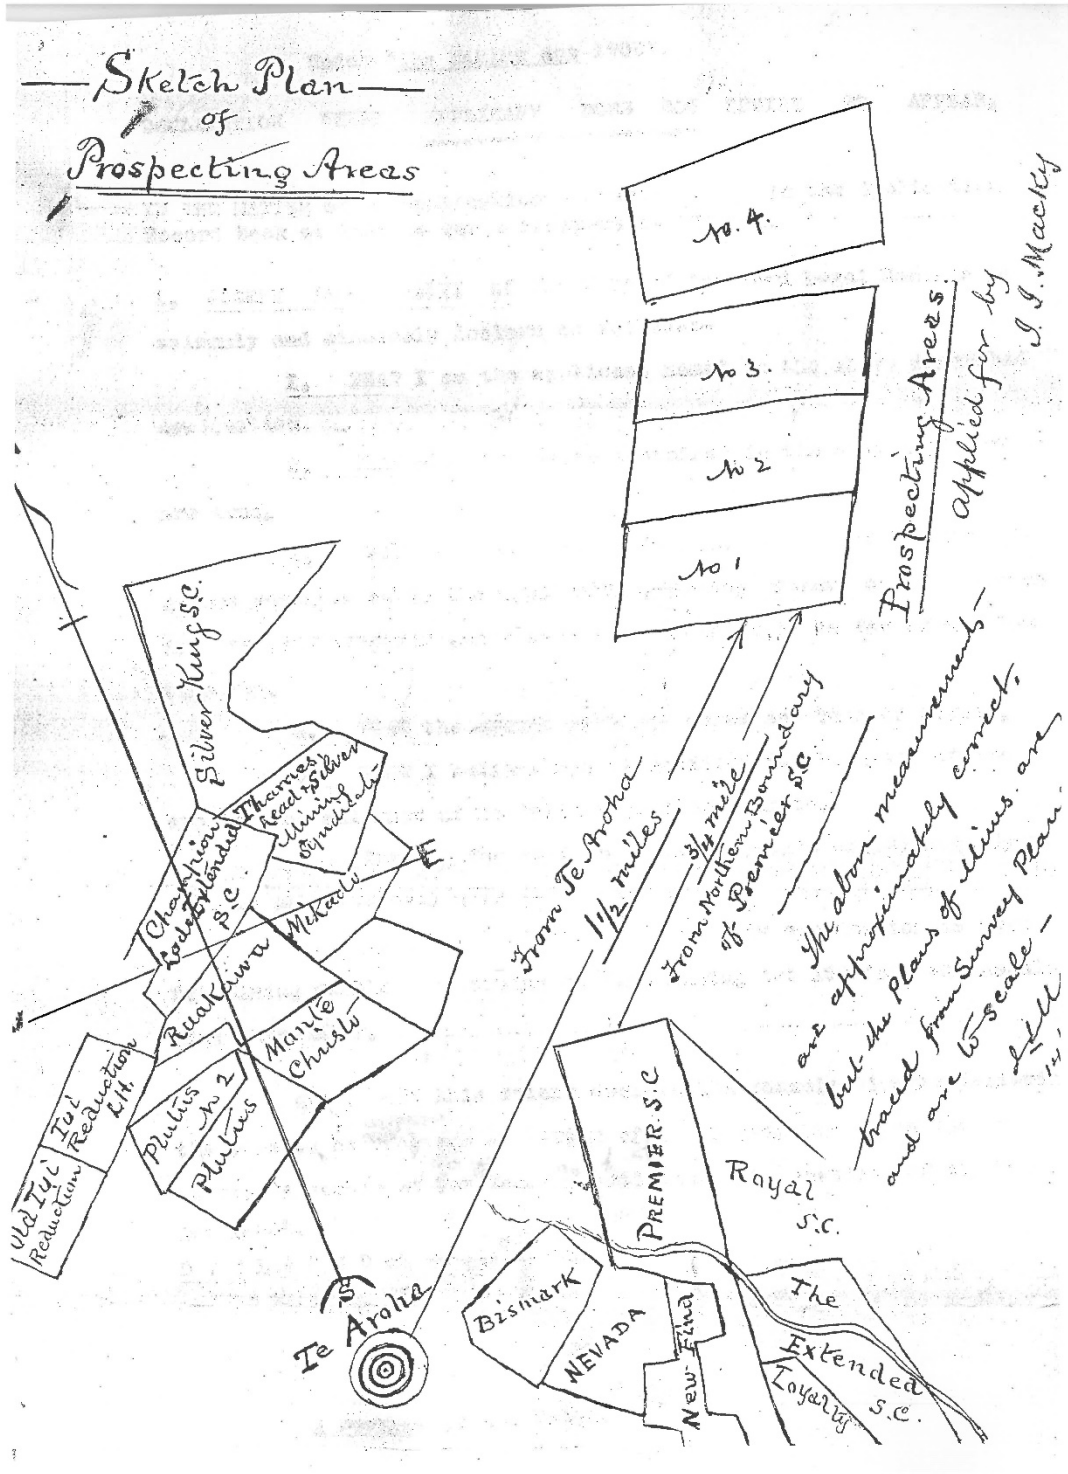 Sketch Plan
of
Prospecting Areas
No. 4.
No 3.
No 2
No 1
Prospecting Areas.
applied for by
J. J. Macky
Silver King S.C.
Thames.
Lead & Silver
Mining
Syndicate
Champion
Lode Extended
S.C.
E
Mikado
Ruakawa
Monte
Christo
Tui
Reduction
L.H.
Old Tui
Reduction
Plutus
No 2
Plutus
S
Te Aroha
From Te Aroha
1 1/2 miles
3/4 mile
From Northern Boundary
of Premier S.C.
The above measurements —
are approximately correct.
but the Plans of Mines. are
traced from Survey Plan.
and are to scale —
PREMIER. S.C
Royal
S.C.
Bismark
NEVADA
New Find
The
Extended
S.C.
Loyalty